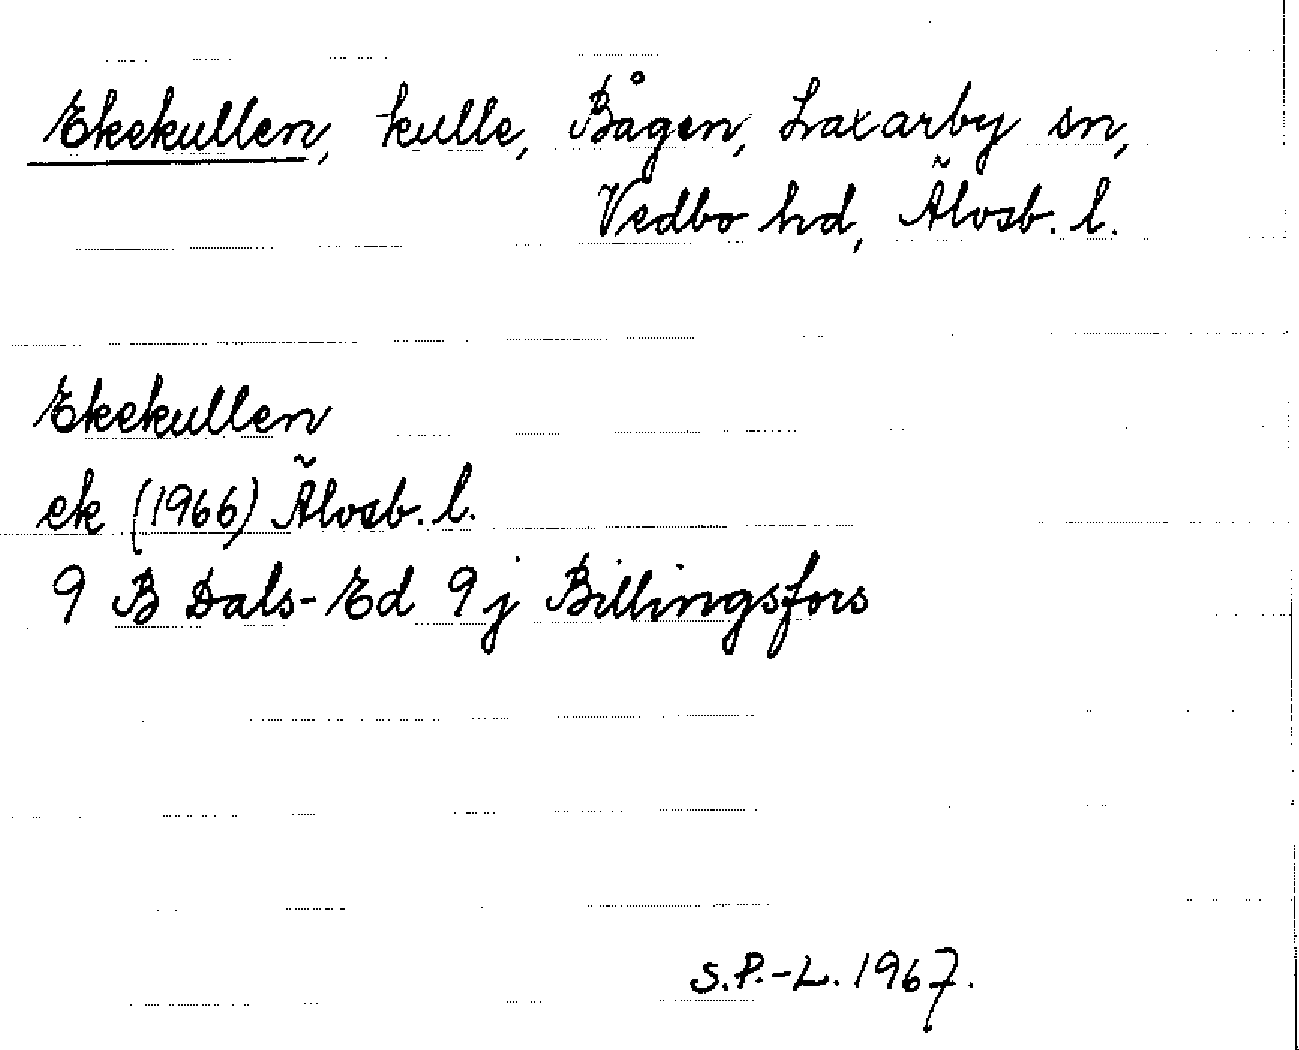 Ekekullen, kulle, Bågen, Laxarby sn,
Vedbo hd, Älvsb. l.
Ekekullen
ek (1966) Älvsb. l.
9 B Dals-Ed 9j Billingsfors
S.P.-L. 1967.